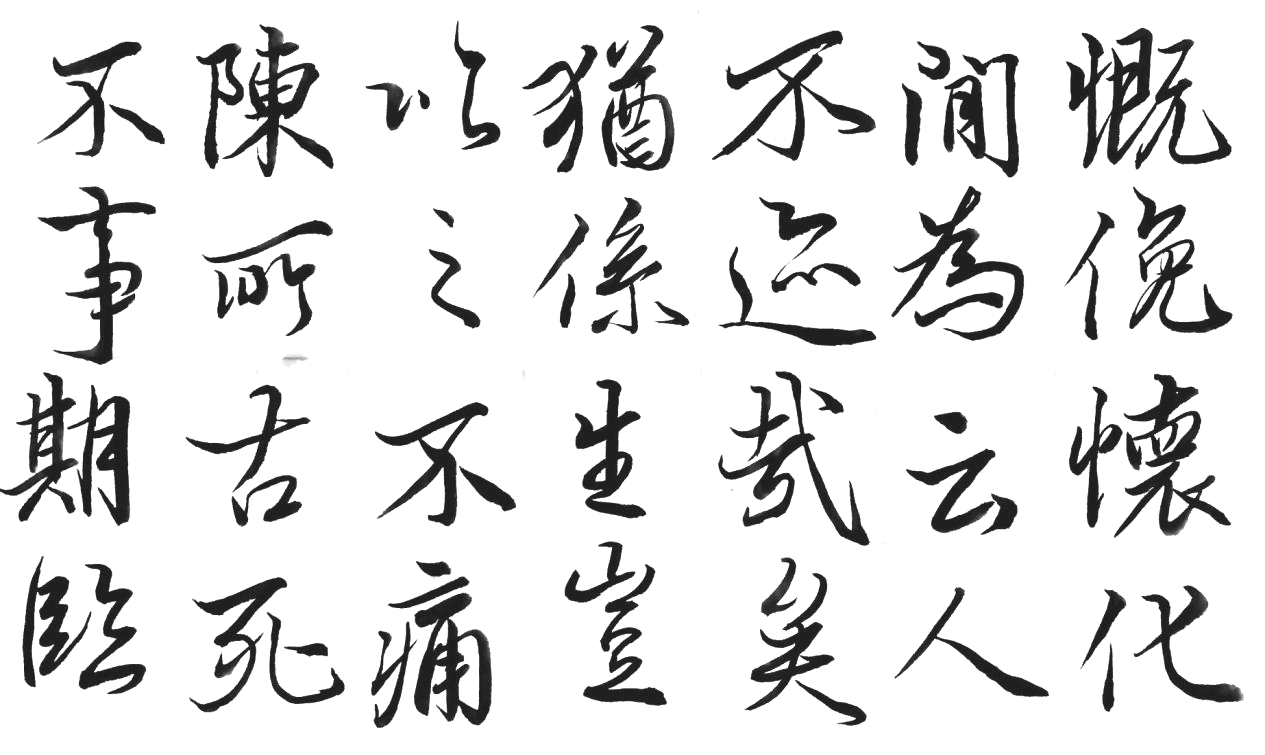 慨俛懷化
閒為云人
不迹哉矣
猶係生豈
以之不痛
陳所古死
不事期臨